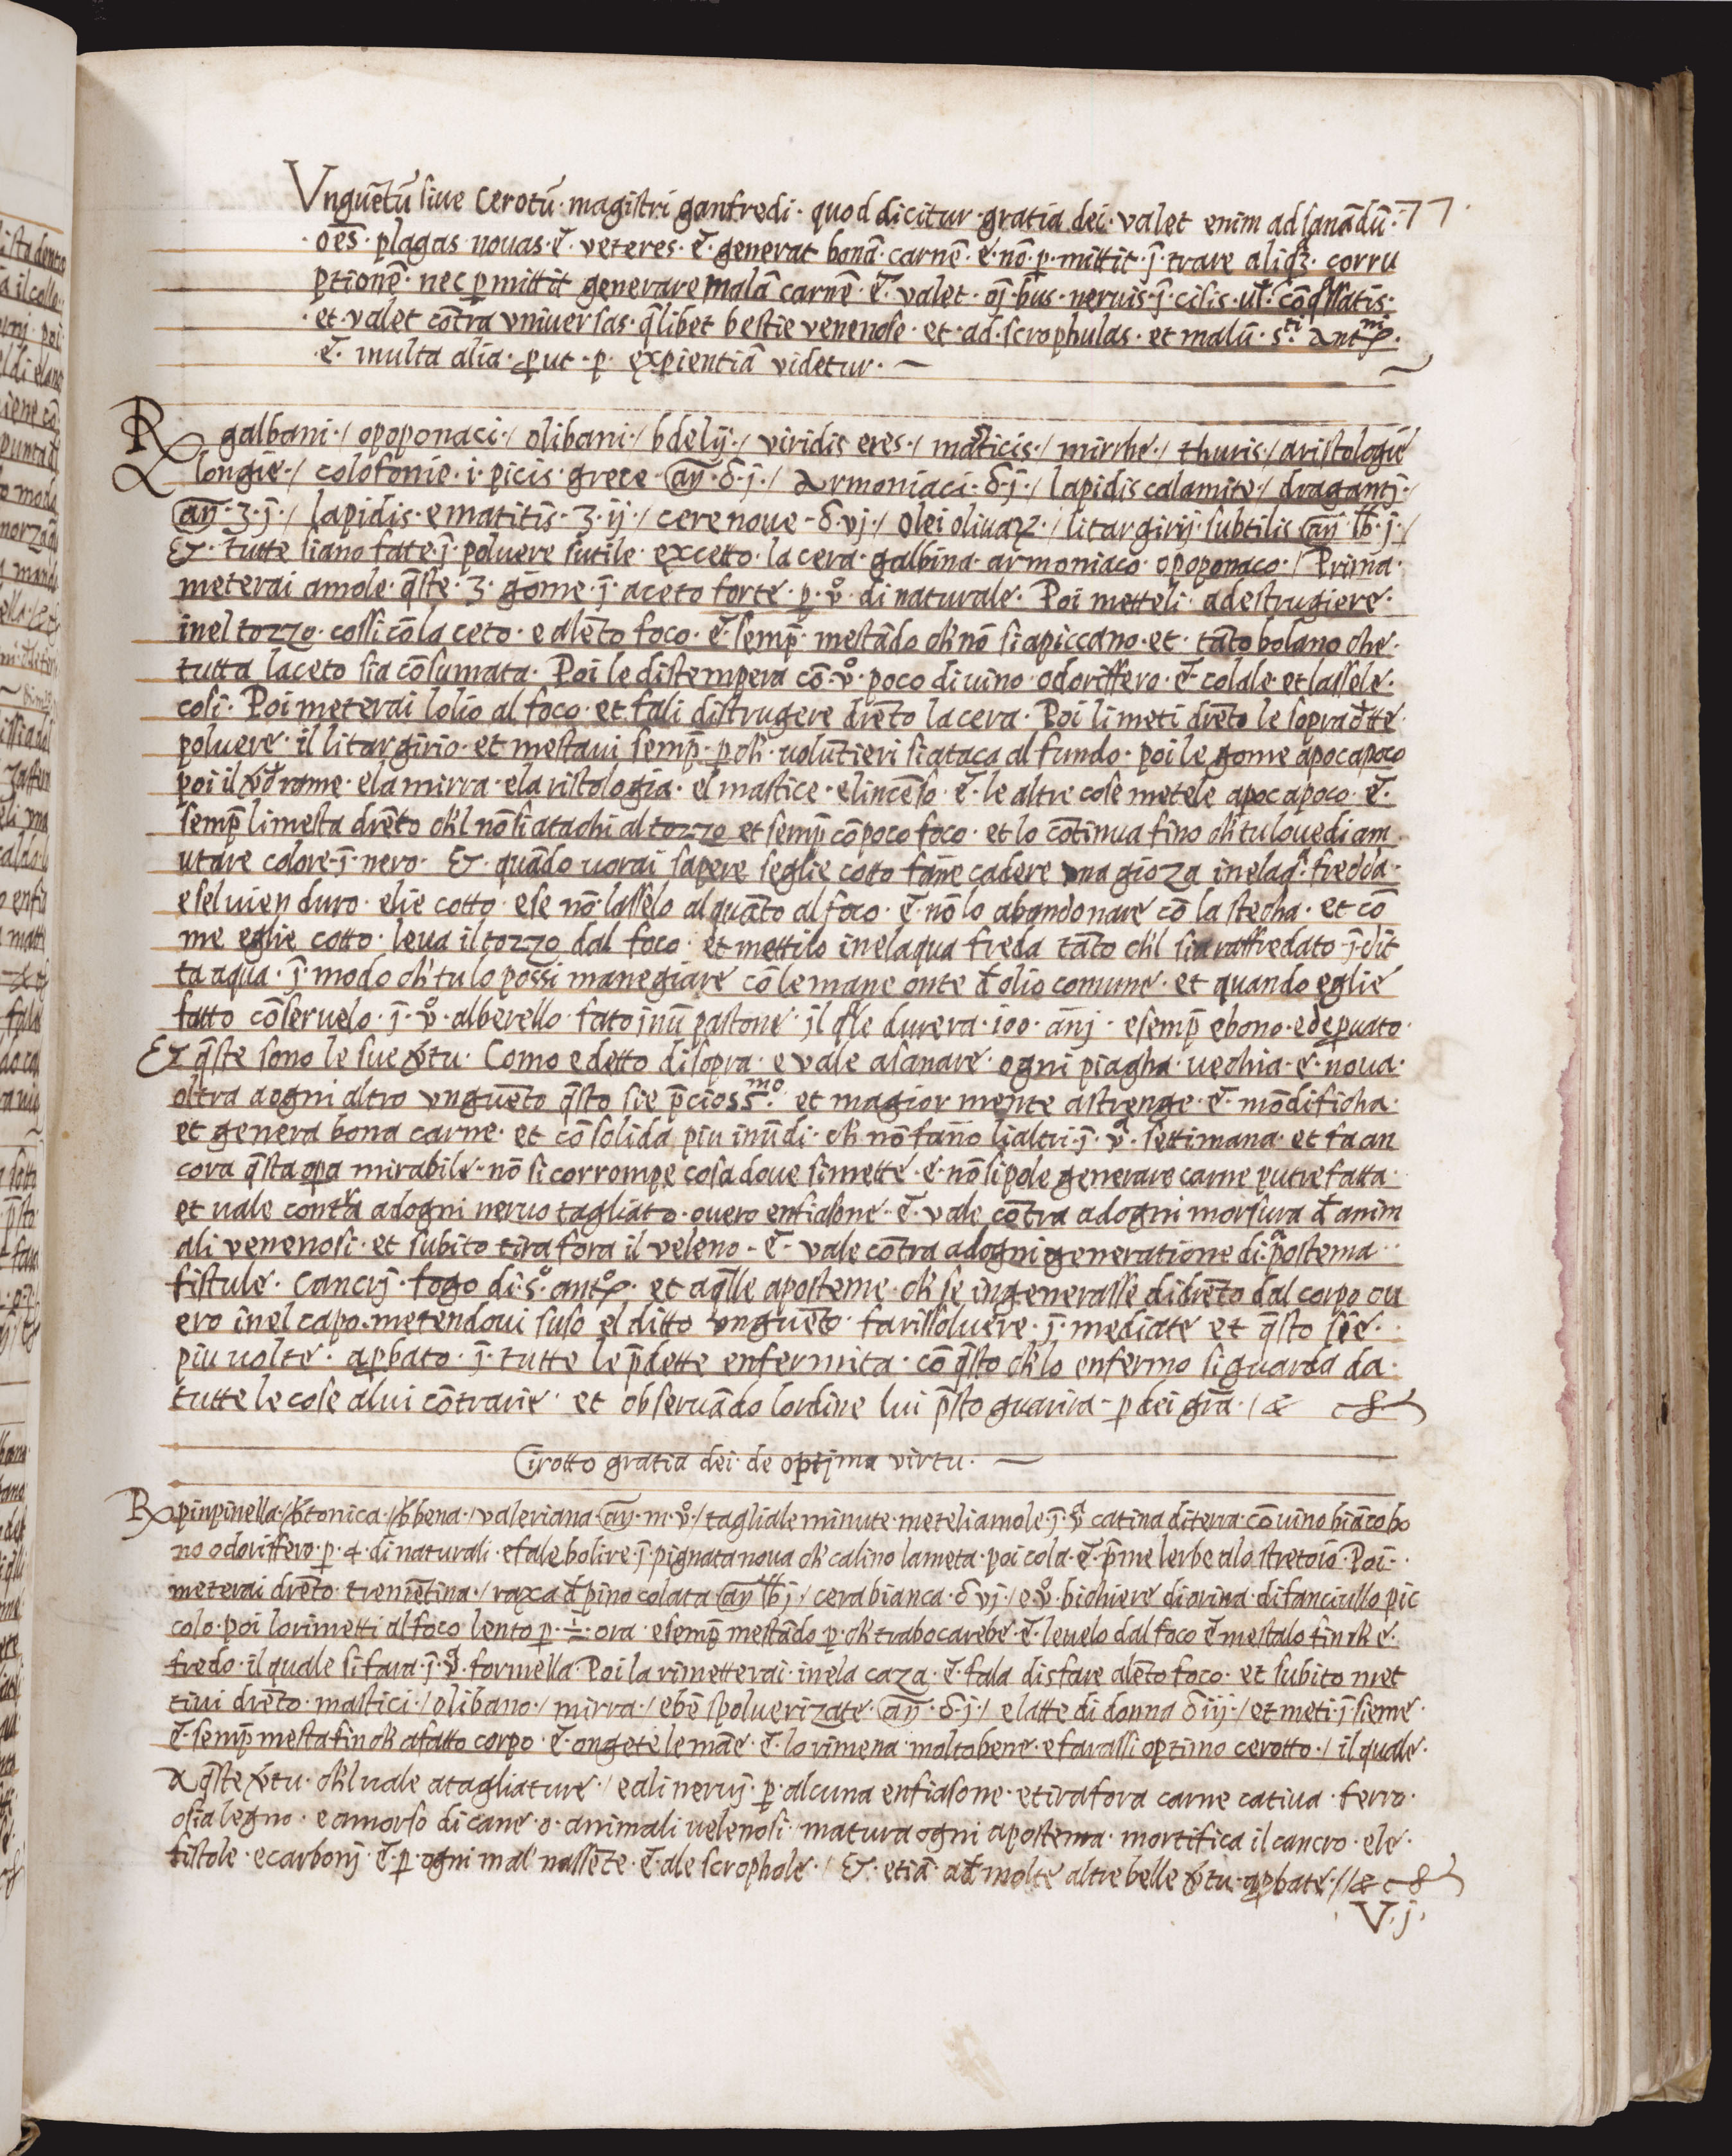 Vnguētū siue Cerotū · magistri ganfredi · quod dicitur · gratia dei · valet enim ad sanādū · 77 ·
· oēs · plagas nouas · ē · veteres · ē · generat bonā · carnē · ē · nō · p · mittit · j̄ · trare aliqȝ · corru
ptionē · nec p mittit generare malā carnē · ē · valet · oj · bus · neruis · j̄ · cisis · ul · cōqssatis ·
· et · valet cōtra vniuersas · q̄libet bestie venenose · et · ad · scrophulas · et malū · s.ti Ant
· ē · multa alia · put · p · expientiā videtur ·
℞ galbani · / opoponaci · / olibani · / bdelij · / viridis eres · / masticis · / mirrhe · / thuris · / aristologie
longie · / colofonie · i · picis · grece · añ · ℥ · j · / Armoniaci · ℥ · j · / lapidis calamite · / dragantj · /
añ · ʒ · j · / lapidis · ematitis · ʒ · ij · / cere noue · ℥ · vj · / olei oliuaꝝ · / litargirij · subtilis añ lb · j · /
Et · tutte siano fate · j̄ · poluere sutile · excetto · la cera · galbina · armoniaco · opoponaco · / Prima ·
meterai amole · q̄ste · 3 · gōme · j̄ · aceto forte · p · v̊ · di naturale · Poi metteli · adestrugiere ·
inel tozzo · cossi cōla ceto · e alēto foco · ē · semp̄ · mestādo ch' nō siapiccano · et · tāto bolano che ·
tutta laceto sia cōsumata · Poi le distempera cō · v̊ · poco di uino · odoriffero · ē · colale · et lassele ·
cosi · Poi meterai lolio al foco · et fali distrugere drēto la cera · Poi li meti drēto le sopradtte
poluere · il litargirio · et mestaui semp̄ · p ch' · uolūtieri si ataca al fundo · poi le gome apoc apoco
poi il v̄d rame · ela mirra · ela ristologia · el mastice · elincēso · ē · le altre cose metele apoc apoco · ē ·
semp̄ li mesta drēto ch'l nō si atachi al tozzo et semp̄ cō poco foco · et lo cōtinua fino ch' tu louedi am
utare colore · j̄ · nero · Et · quādo uorai sapere seglie cotto fāne cadere vna gioza inelaq.a fredda ·
e sel uien duro · elie cotto · ese nō · lasselo alquāto al foco · ē · nō lo abandonare cō la stecha · et cō
me eglie cotto · leua il tozzo dal foco · et mettilo inelaqua freda tāto ch'l sia raffredato · j̄ · dit
ta aqua · j̄ · modo ch' tu lo possi manegiare cō le mane onte đ olio comune · et quando eglie
fatto cōseruelo · j̄ · v̊ · alberello · fato jnū pastone · jl q̄le durera · 100 · ānj · e semp̄ ebono · ede puato ·
Et q̄ste sono le sue v̄tu · Como e detto di sopra · e vale a sanare · ogni piagha · uechia · e · noua ·
oltra a ogni altro vnguēto q̄sto sie p̄cioss.mo et magior mente astrenge · ē · mōdificha ·
et genera bona carne · et cōsolida piu inūdi · ch' nō fano li altri · j̄ · v.a settimana · et fa an
cora q̄sta opa mirabile · nō si corrompe cosa doue si mette · e · nō si pole generare carne putrefatta ·
et uale contra adogni neruo tagliato · ouero enfiasone · ē · vale cōtra adogni morsura đ anim
ali venenosi · et subito tira fora il veleno · ē · vale cōtra adogni generatione di · apostema ·
fistule · Cancrj · fogo di · s.o ant.o · et aq̄lle aposteme · ch' se ingenerasse di drēto dal corpo ou
ero inel capo · metendoui suso el ditto vnguēto · fa rissoluere · j̄ · mediate et q̄sto sie ·
piu uolte · apbato · j̄ · tutte le p̄dette enfermita · cō q̄sto ch' lo enfermo si guarda da ·
tutte le cose alui cōtrarie · et obseruādo lordine lui p̄sto guarira · p dei gr̄a · / & c
Cirotto gratia dei · de optjma virtu ·
℞ pinpinella · / btonica · / bbena · / valeriana añ · m · v̊ · / tagliale minute · meteli amole · j̄ · v.a catina di terra · cō uino biāco bo
no odoriffero · p · 4 · di naturali · e fale bolire · j̄ · pignata noua ch' calino la meta · poi cola · ē · p̄me lerbe alo stretoio · Poi ·
meterai drēto · tremētina · / raxa đ pino colata añ lb j · / cera bianca · ℥ vj · / e · v̊ · bichiere di orina · di fanciullo pic
colo · poi lo rimetti al foco lento p · ÷ · ora · e semp̄ mestādo · p · ch' trabocarebe · ē · leuelo dal foco ē mestalo fin ch' e ·
fredo · il quale si fara · j̄ · v.a · formella · Poi la rimetterai · inela caza · ē · fala disfare alēto foco · et subito met
tiui drēto · mastici · / olibano · / mirra · / ebē spoluerizate · añ · ℥ · j · / e latte di donna ℥ iij · / et meti · j̄ · sieme ·
ē · semp̄ mesta fin ch' afatto corpo · ē · ongete le māe · ē · lo rimena molto bene · e farassi optimo cerotto · / il quale ·
A q̄ste v̄tu · ch'l uale a tagliature · / e ali neruj · p · alcuna enfiasone · e tira fora carne catiua · ferro ·
osia legno · e a morso di cane · o · animali uelenosi · matura ogni apostema · mortifica il cancro · ele ·
fistole · e carbonj · ē · p · ogni mal' nassēte · ē · ale scrophole · / Et · etiā · ad molte altre belle v̄tu · apbate · / / & c
· V · j ·